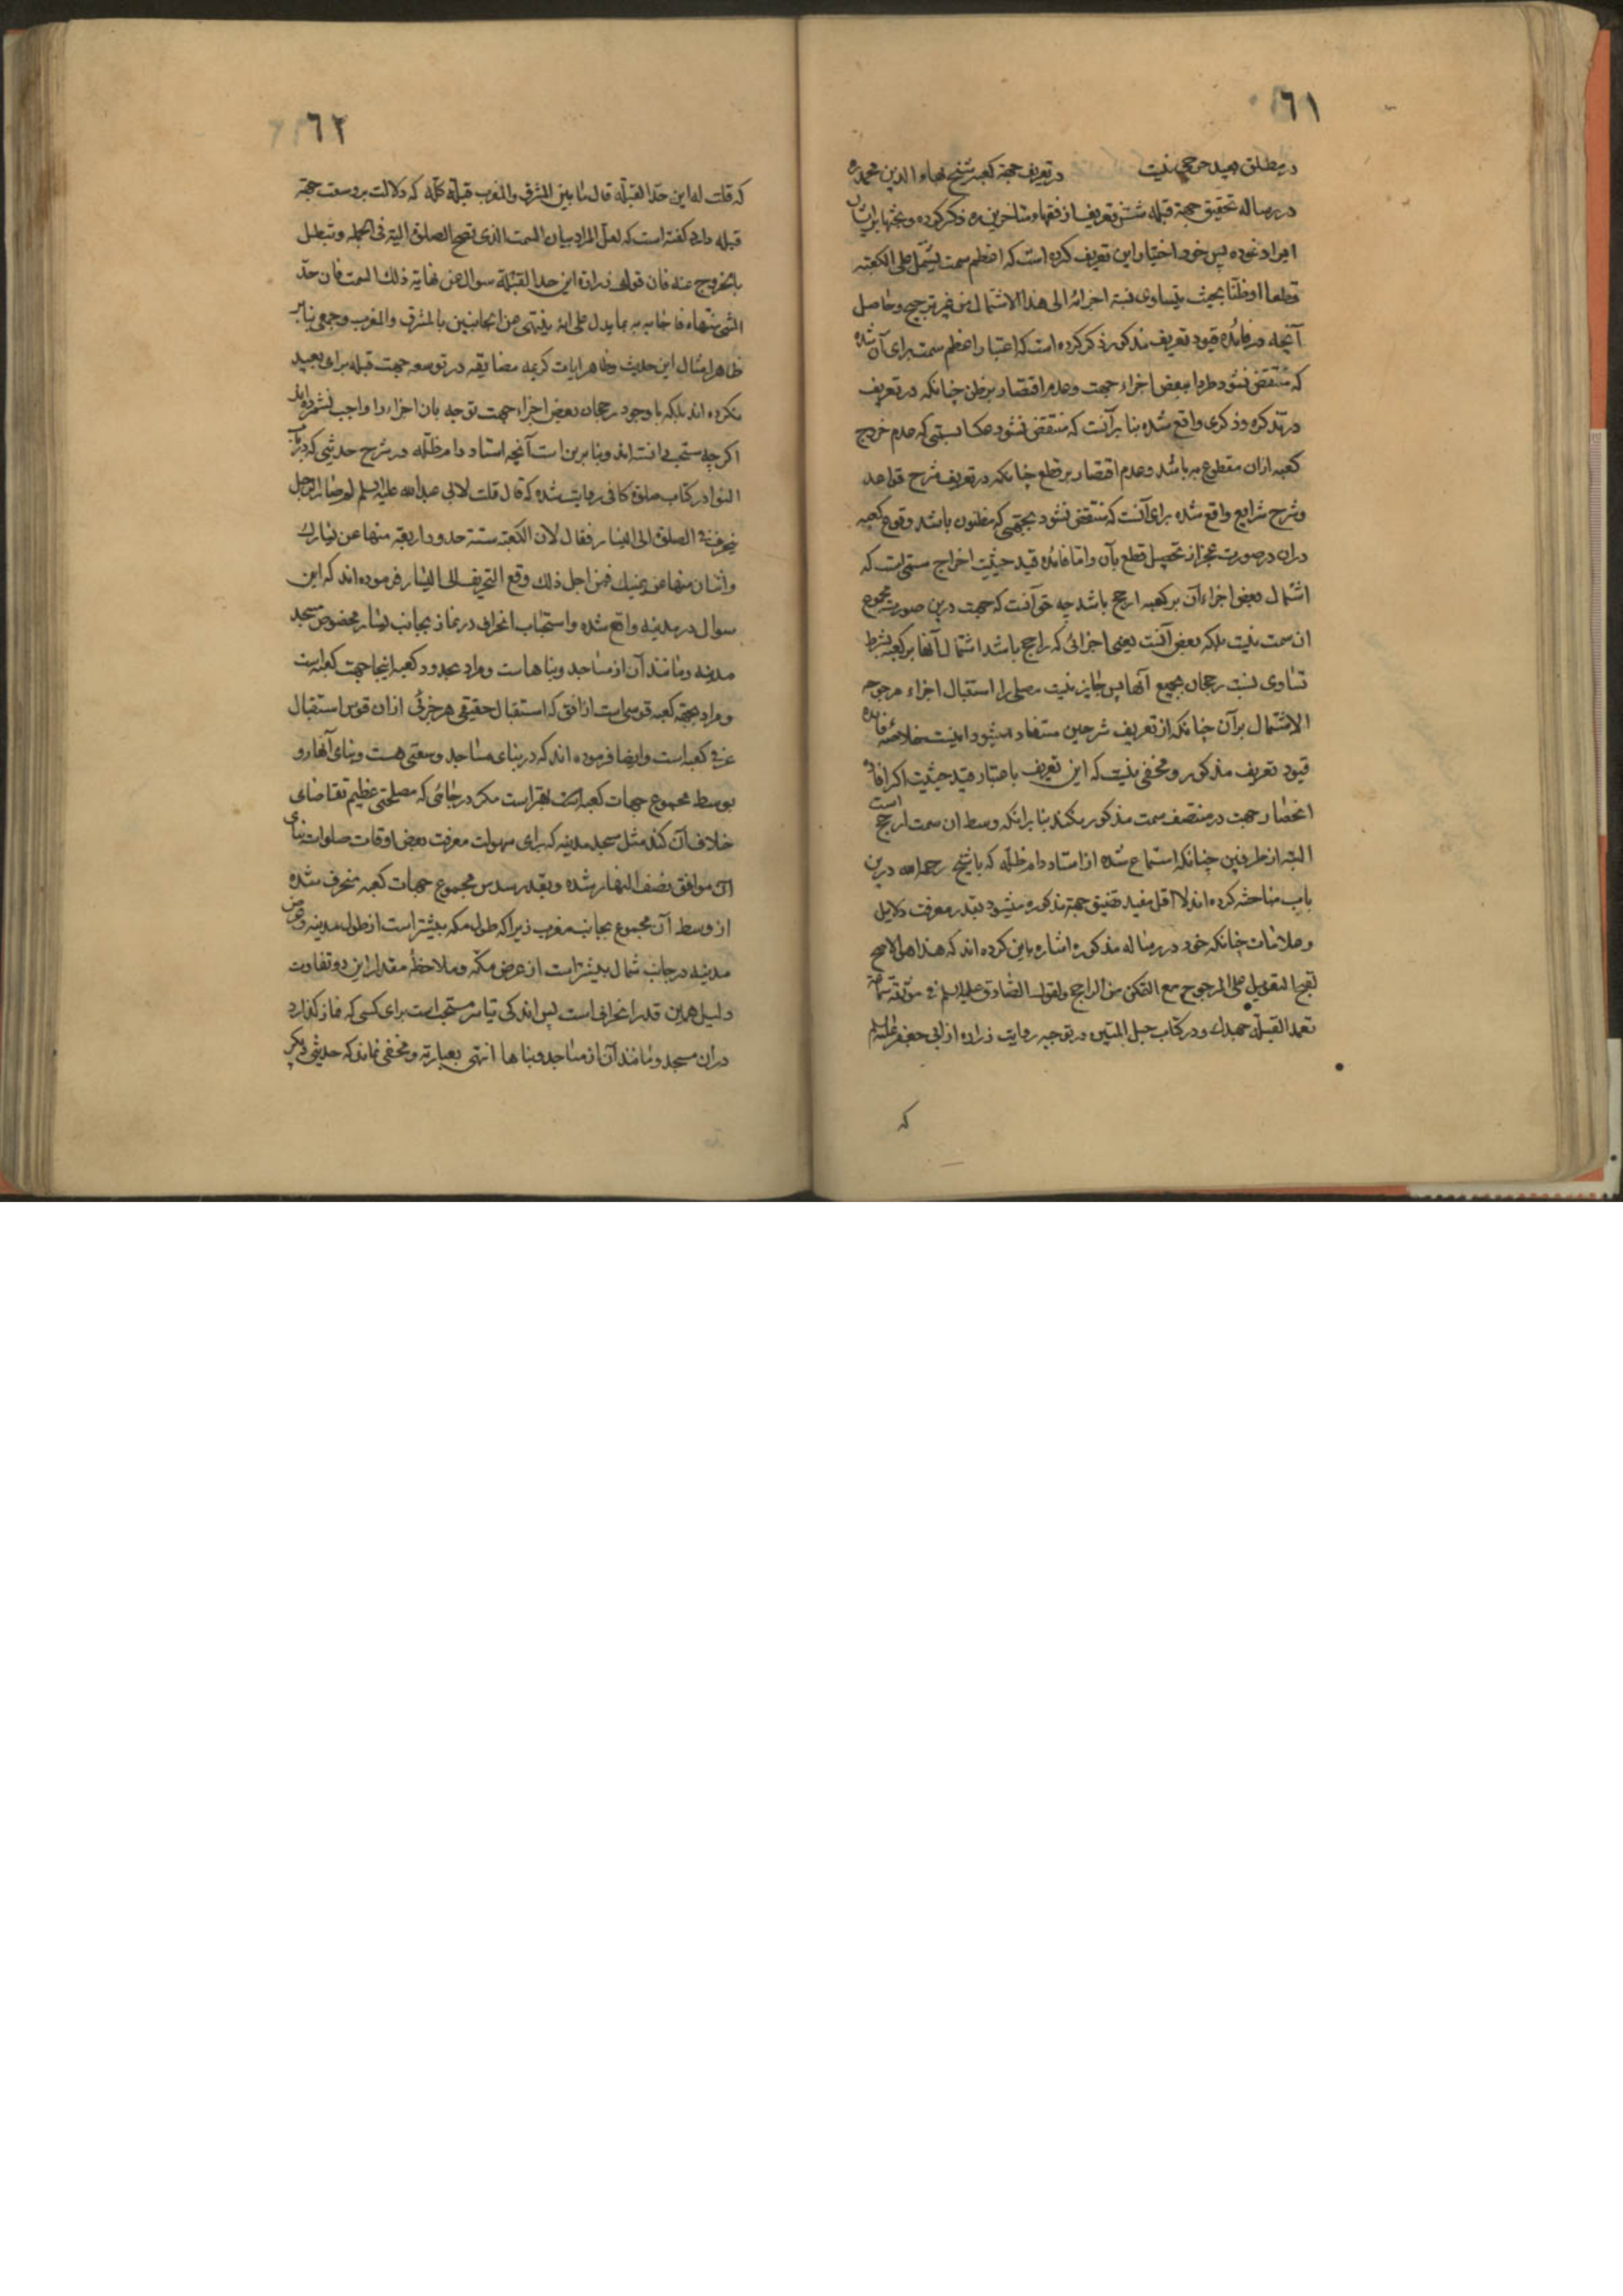 ٦١
در مطلق بعید حرجی نیست در تعریف جهة کعبه شیخ بهاء الدین محمد ره
در رساله تحقیق جهة قبله شش تعریف از فقهاء متاخرین ره ذکر کرده و بحثها بر ایشان
ایراد نموده پس خود اختیار این تعریف کرده است که اعظم سمت یشتمل علی الکعبة
قطعا او ظنا بحیث یتساوی نسبة اجزائه الی هذا الاشتمال من غیر ترجیح و حاصل
آنچه در فائده قیود تعریف مذکور ذکر کرده است که اعتبار اعظم سمت برای آن شده
که منتقض نشود طردا ببعض اجزاء جهت و عدم اقتصار بر ظن چنانکه در تعریف
در تذکره و ذکری واقع شده بنا بر آنست که منتقض نشود عکسا بسمتی که عدم خروج
کعبه ازان مقطوع به باشد و عدم اقتصار بر قطع چنانکه در تعریف شرح قواعد
و شرح شرایع واقع شده برای آنست که منتقض نشود بجهتی که مظنون باشد وقوع کعبه
دران در صورت عجز از تحصیل قطع بآن و اما فائده قید حیثیت اخراج سمتی است که
اشتمال بعض اجزاء آن بر کعبه ارجح باشد چه حق آنست که جهت درین صورت مجموع
ان سمت نیست بلکه بعض آنست یعنی اجزائی که راجح باشد اشتمال آنها بر کعبه بشرط
تساوی نسبت رجحان بجمیع آنها پس جایز نیست مصلی را استقبال اجزاء مرجوحه
الاشتمال بر آن چنانکه از تعریف شرحین مستفاد میشود اینست خلاصه فائده
قیود تعریف مذکور و مخفی نیست که این تعریف باعتبار قید حیثیت اکر افاده
انحصار جهت در منتصف سمت مذکور نکند بنا برانکه وسط ان سمت ارجح است
البته از طرفین چنانکه استماع شده از استاد دام ظله که با شیخ رحمه الله درین
باب مباحثه کرده اند لا اقل مفید تضییق جهة مذکوره میشود بقدر معرفت دلایل
و علامات چنانکه خود در رساله مذکوره اشاره باین کرده اند که هذا هو الاصح
لقبح التعویل علی المرجوح مع التمکن من الراجح و لقول الصادق علیه السلم فی موثقة سماعة
تعمد القبلة جهدک و در کتاب حبل المتین در توجیه روایت زراره از ابی جعفر علیه السلم
که
٦٢
که قلت له این حد القبلة قال ما بین المشرق و المغرب قبلة کله که دلالت بر وسعت جهة
قبله دارد کفته است که لعل المراد بیان السمت الذی تصح الصلوة الیه فی الجملة و تبطل
بالخروج عنه فان قول زرارة این حد القبلة سوال عن نهایة ذلک السمت فان حد
الشیء منتهاه فاجابه بما یدل علی انه ینتهی من الجانبین بالمشرق و المغرب و جمعی بنا بر
ظاهر امثال این حدیث و ظاهر ایات کریمه مضایقه در توسعه جهت قبله برای بعید
نکرده اند بلکه با وجود رجحان بعض اجزاء جهت توجه بان اجزاء را واجب نشمرده اند
اکر چه مستحب دانسته اند و بنا برین است آنچه استاد دام ظله در شرح حدیثی که در باب
النوادر کتاب صلوة کافی روایت شده که قال قلت لابی عبد الله علیه السلم لم صار الرجل
ینحرف فی الصلوة الی الیسار فقال لان للکعبة ستة حدود اربعة منها عن یسارک
و اثنان منها عن یمینک فمن اجل ذلک وقع التحریف الی الیسار فرموده اند که این
سوال در مدینه واقع شده و استحباب انحراف در نماز بجانب یسار مخصوص مسجد
مدینه و مانند آن از مساجد و بناها است و مراد بحدود کعبه اینجا جهت کعبه است
و مراد بجهة کعبه قوسی است از افق که استقبال حقیقی هر جزئی ازان قوس استقبال
عرفی کعبه است و ایضا فرموده اند که در بنای مساجد وسعتی هست و بنای آنها رو
بوسط مجموع جهات کعبه بهتر است مکر در جائی که مصلحتی عظیم تقاضای
خلاف آن کند مثل مسجد مدینه که برای سهولت معرفت بعض اوقات صلوات بنای
آن موافق نصف النهار شده و بقدر سدس مجموع جهات کعبه منحرف شده
از وسط آن مجموع بجانب مغرب زیرا که طول مکه بیشتر است از طول مدینه و عرض
مدینه در جانب شمال بیشتر است از عرض مکه و ملاحظه مقدار این دو تفاوت
دلیل همین قدر انحراف است پس اندکی تیاسر مستحب است برای کسی که نماز کذارد
دران مسجد و مانند آن از مساجد و بناها انتهی بعبارته و مخفی نماند که حدیثی دیکر